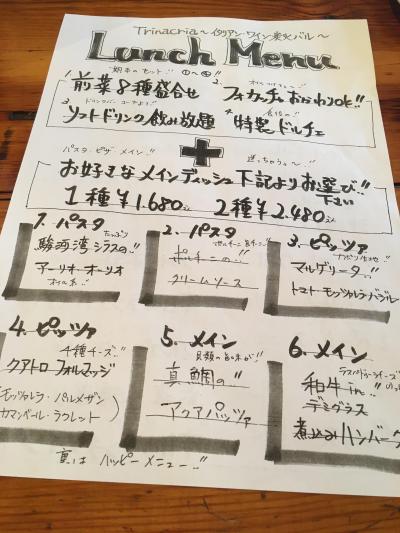 Trinacria～イタリアン・ワイン炭火バル～
Lunch Menu
期本のセット!! ①～④!!
1. 前菜8種盛合せ
2. フォカッチャおかわりOK!!
3. ドリンクバーコーナーより!!
ソフトドリンク飲み放題
4. 自慢の!!
特製ドルチェ
+
パスタ・ピザ・メイン!!
選っちゃうぅ～!!
お好きなメインディッシュ下記よりお選び下さい!!
1種¥1.680込 2種¥2.480込
1. パスタ
たっぷり
駿河湾シラスの!!
アーリオ・オーリオ
オイル系!!
2. パスタ
ポルチーニの!!
クリームソース
3. ピッツァ
ナポリ生地!!
マルゲリータ!!
トマト・モッツァレラ・バジル
4. ピッツァ
4種チーズ!!
クアトロフォルマッジ
モッツァレラ・パルメザン
カマンベール・ラクレット
5. メイン
貝類の旨味が!!
真鯛の!!
アクアパッツァ
6. メイン
ラスパドゥーラチーズ
和牛in!!
デミグラス
煮込みハンバーグ
裏はハッピーメニュー!!